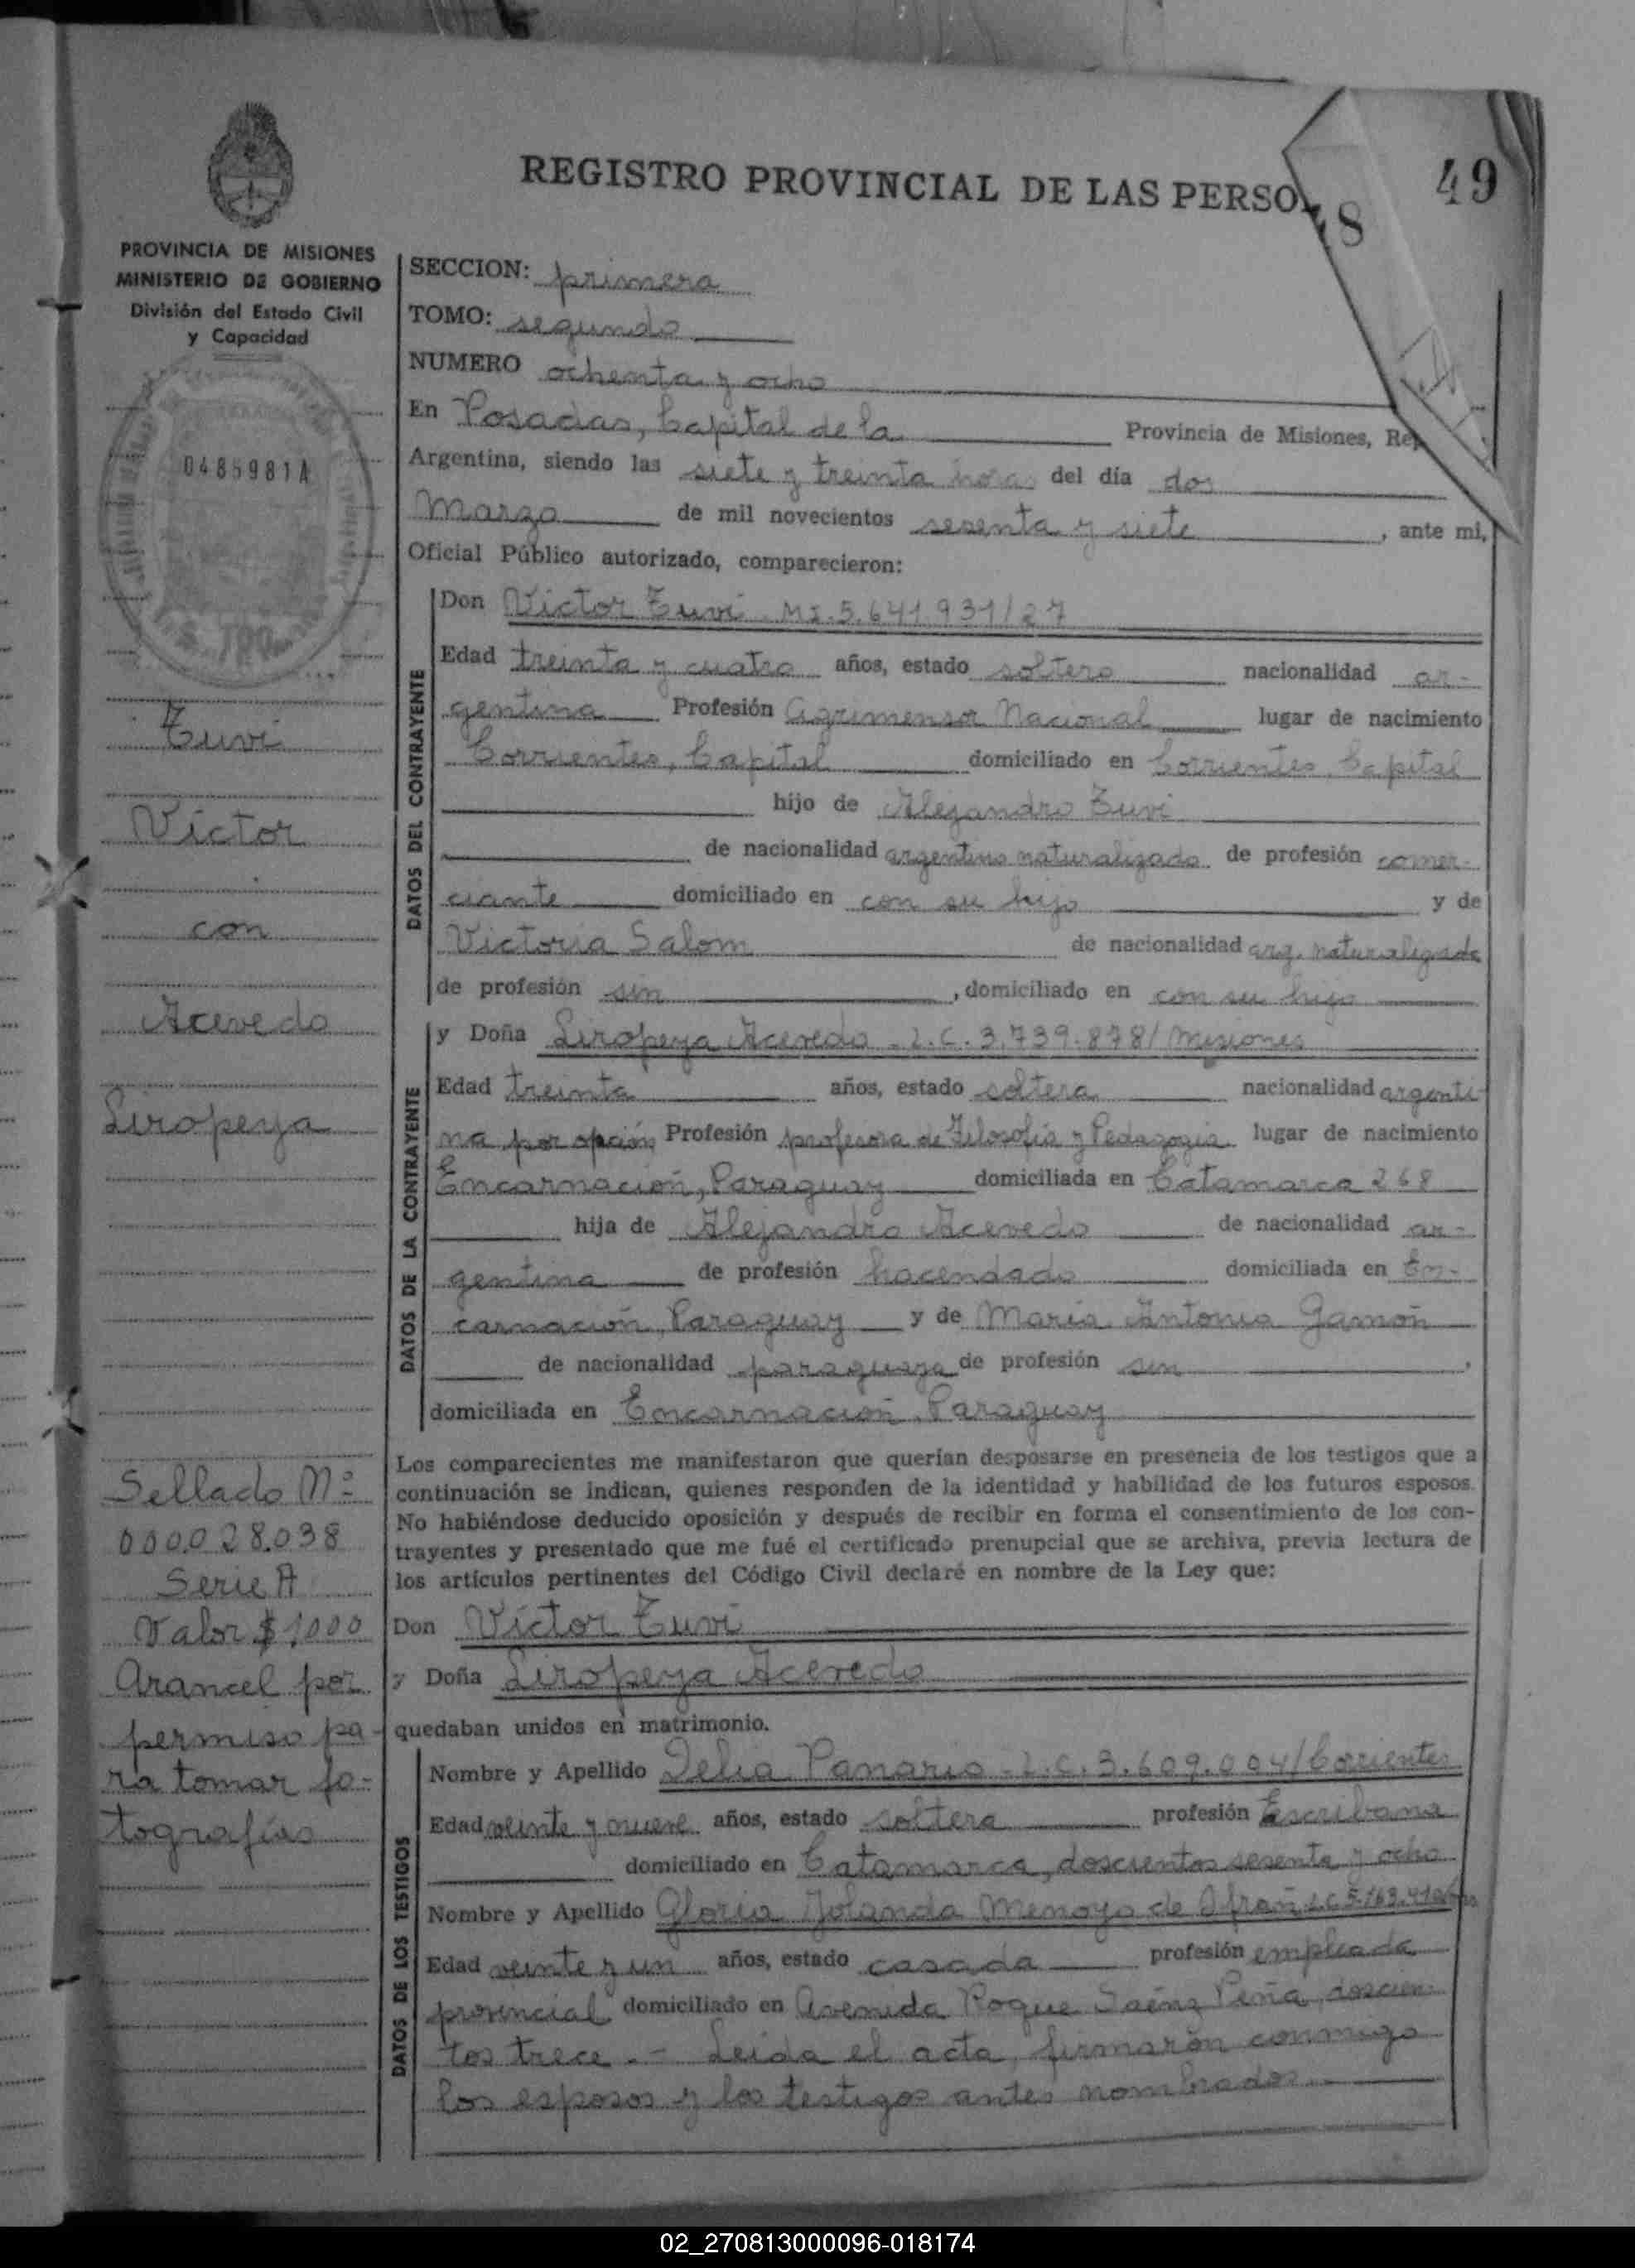 49
REGISTRO PROVINCIAL DE LAS PERSO
S
PROVINCIA DE MISIONES
MINISTERIO DE GOBIERNO
División del Estado Civil
y Capacidad
0485981A
700
SECCION: primera
TOMO: segundo
NUMERO ochenta y ocho
En Posadas, Capital de la Provincia de Misiones, Rep
Argentina, siendo las siete y treinta horas del día dos
Marzo de mil novecientos sesenta y siete, ante mi,
Oficial Público autorizado, comparecieron:
DATOS DEL CONTRAYENTE
Don Víctor Tuvi MI.5.641.931/27
Edad treinta y cuatro años, estado soltero nacionalidad ar-
gentina Profesión Agrimensor Nacional lugar de nacimiento
Corrientes, Capital domiciliado en Corrientes, Capital
hijo de Alejandro Tuvi
de nacionalidad argentino naturalizado de profesión comer-
ciante domiciliado en con su hijo y de
Victoria Salom de nacionalidad arg. naturalizada
de profesión sin, domiciliado en con su hijo
DATOS DE LA CONTRAYENTE
y Doña Liropeya Acevedo - L.C. 3.739.878/ Misiones
Edad treinta años, estado soltera nacionalidad argenti-
na por opción Profesión profesora de Filosofía y Pedagogía lugar de nacimiento
Encarnación, Paraguay domiciliada en Catamarca 268
hija de Alejandro Acevedo de nacionalidad ar-
gentina de profesión hacendado domiciliada en En-
carnación, Paraguay y de María Antonia Gamón
de nacionalidad paraguaya de profesión sin,
domiciliada en Encarnación Paraguay
Los comparecientes me manifestaron que querían desposarse en presencia de los testigos que a
continuación se indican, quienes responden de la identidad y habilidad de los futuros esposos.
No habiéndose deducido oposición y después de recibir en forma el consentimiento de los con-
trayentes y presentado que me fué el certificado prenupcial que se archiva, previa lectura de
los artículos pertinentes del Código Civil declaré en nombre de la Ley que:
Don Víctor Tuvi
y Doña Liropeya Acevedo
quedaban unidos en matrimonio.
DATOS DE LOS TESTIGOS
Nombre y Apellido Delia Panario - L.C. 3.609.004/Corrientes
Edad veinte y nueve años, estado soltera profesión Escribana
domiciliado en Catamarca, doscientos sesenta y ocho
Nombre y Apellido Gloria Yolanda Menoyo de L.C. 5.163.
Edad veinte y un años, estado casada profesión empleada
provincial domiciliado en Avenida Roque Saénz Peña, doscien-
tos trece. - Leída el acta, firmarón conmigo
los esposos y los testigos antes nombrados.
Tuvi
Víctor
con
Acevedo
Liropeya
Sellado Nº
000.028.038
Serie A
Valor $ 1.000
Arancel por
permiso pa-
ra tomar fo-
tografías
02_270813000096-018174